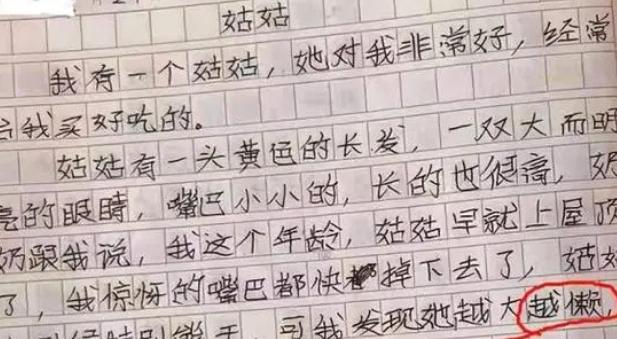 姑姑
我有一个姑姑，她对我非常好，经常
给我买好吃的。
姑姑有一头黄色的长发，一双大而明
亮的眼睛，嘴巴小小的，长的也很高，奶
奶跟我说，我这个年龄，姑姑早就上屋顶
了，我惊讶的嘴巴都快掉下去了，姑姑
能干，可我发现她越大越懒，